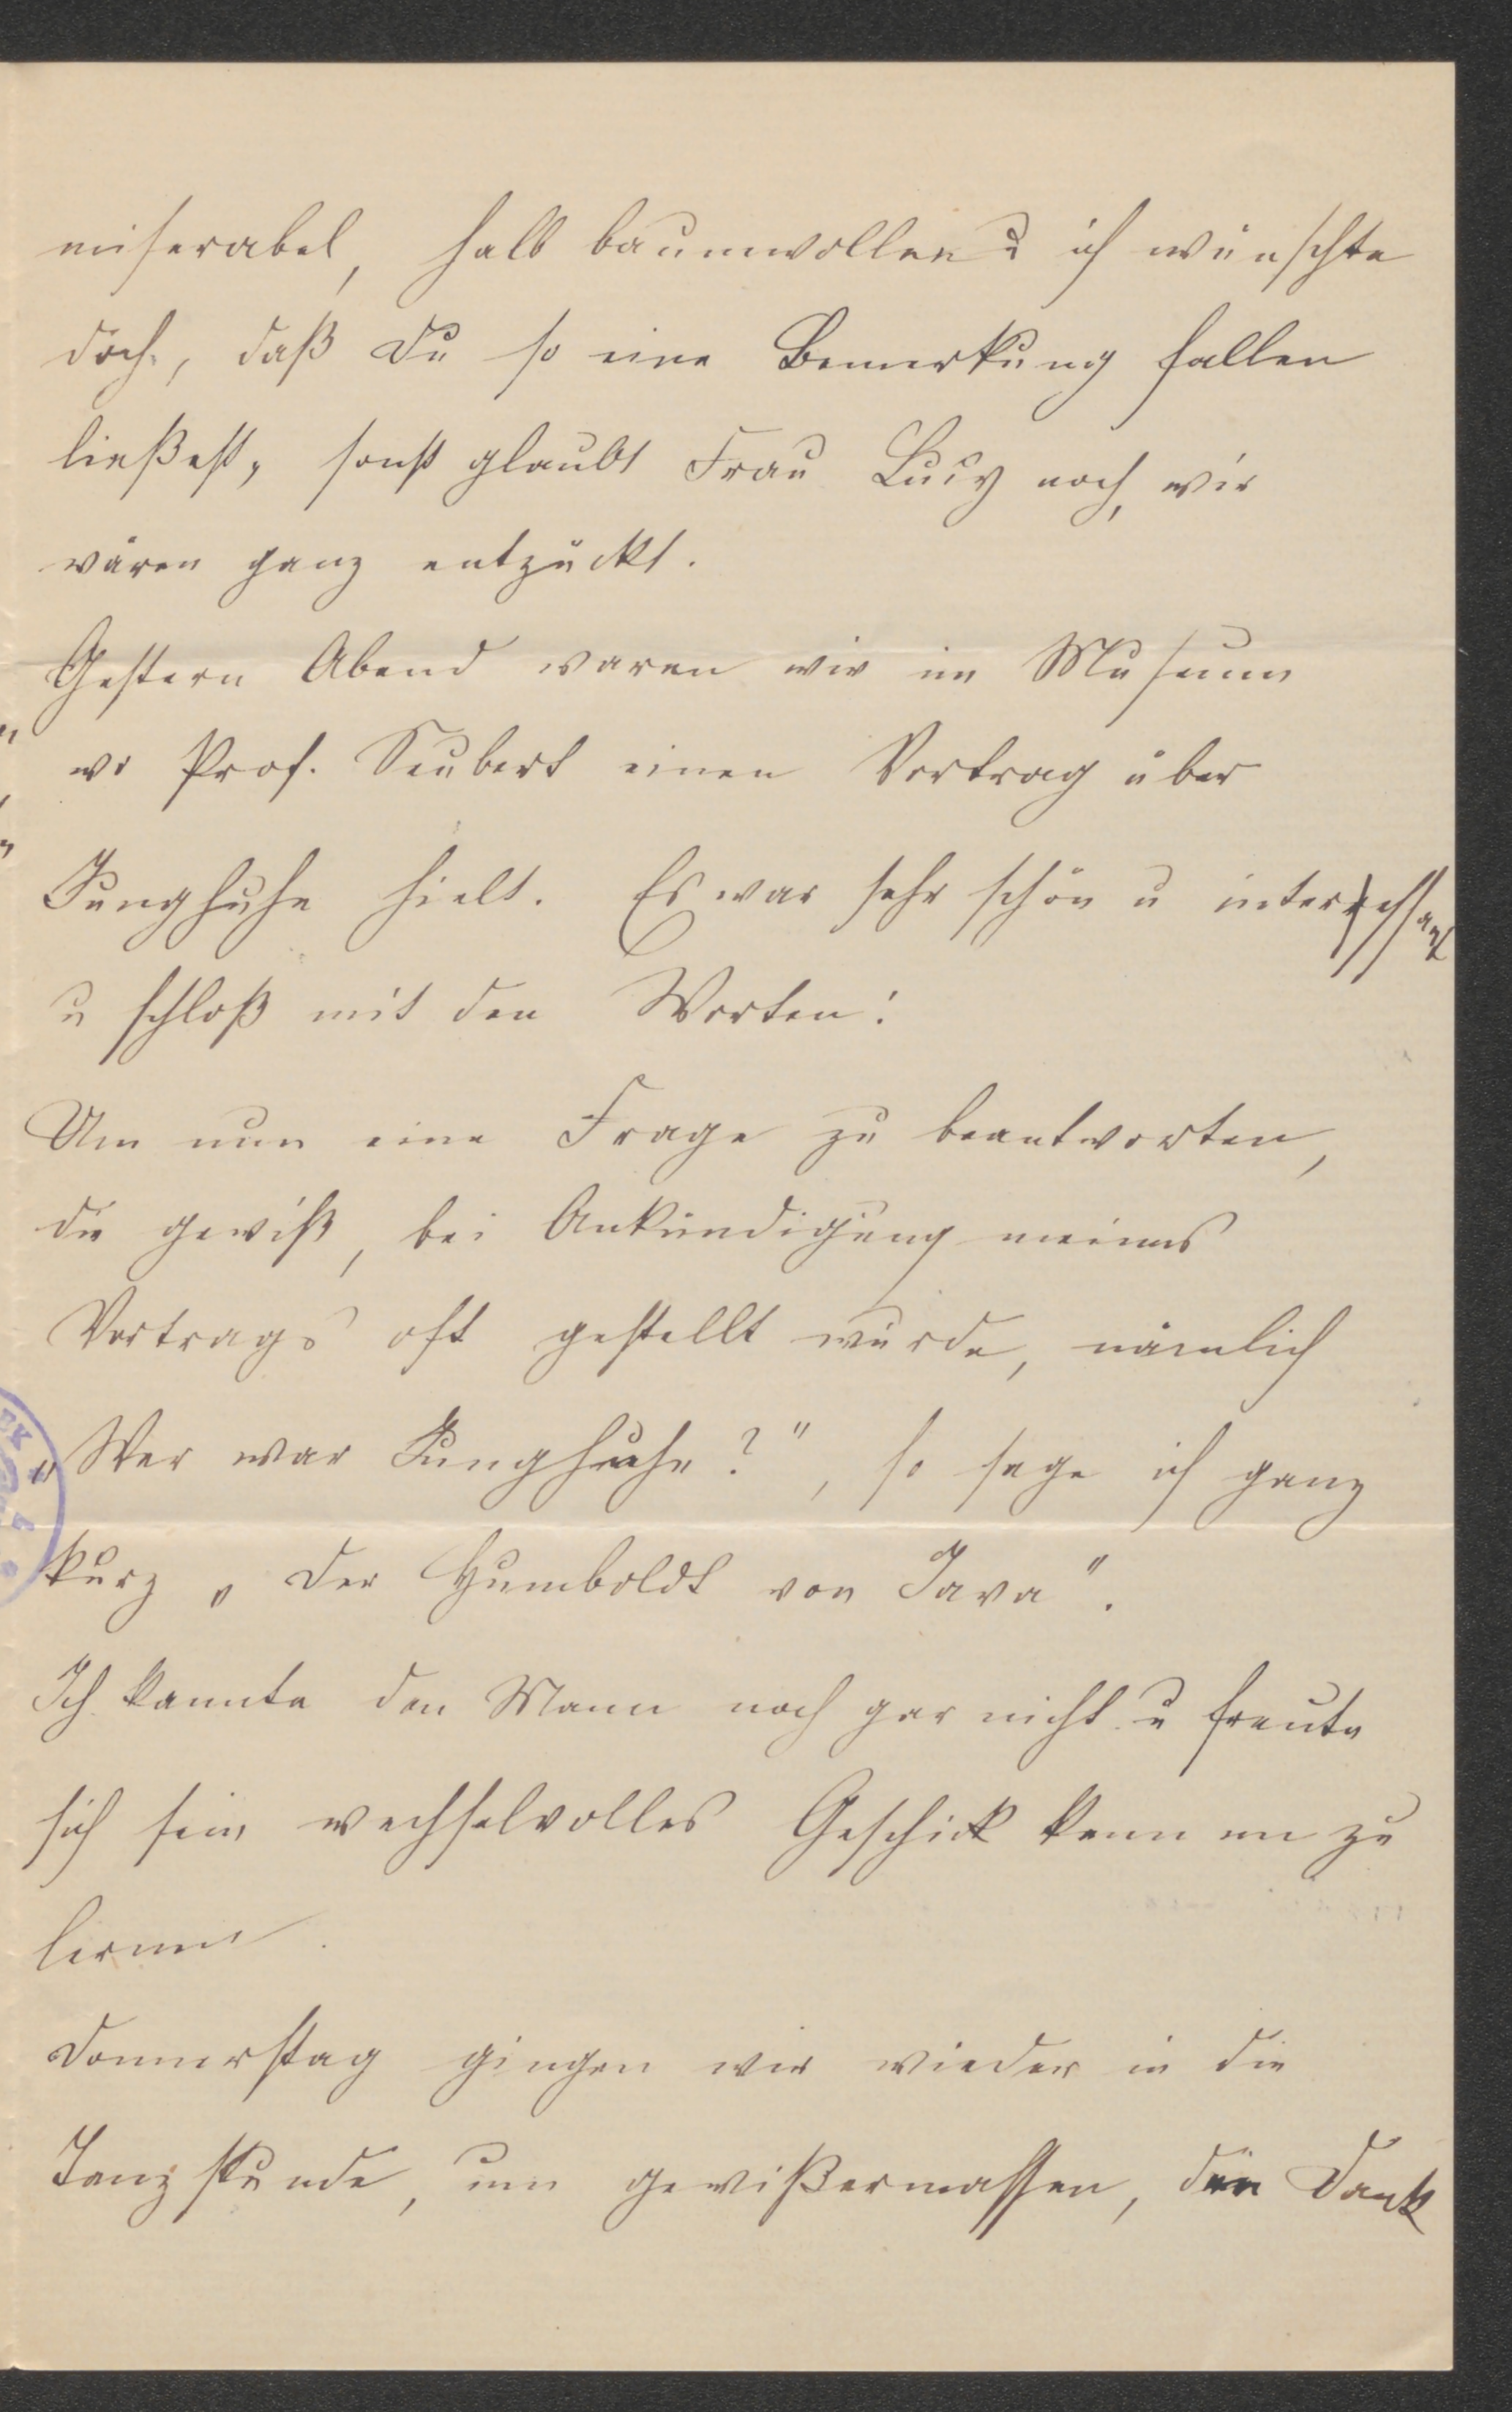 miserabel, halb baumwollen u ich wünschte
doch, daß Du so eine Bemerkung fallen
ließest, sonst glaubt Frau Lucy noch, wir
wären ganz entzückt.
Gestern Abend waren wir im Museum
wo Prof. Seubert einen Vortrag über
Junghuhn hielt. Es war sehr schön u interessant
u schloß mit den Worten:
Um nun eine Frage zu beantworten,
die gewiß, bei Ankündigung meines
Vortrags oft gestellt wurde, nämlich
„Wer war Junghuhn?", so sage ich ganz
kurz „Der Humboldt von Java".
Ich kannte den Mann noch gar nicht u freute
sich sein wechselvolles Geschick kennen zu
lernen.
Donnerstag gingen wir wieder in die
Tanzstunde, um gewißermassen, den Dank